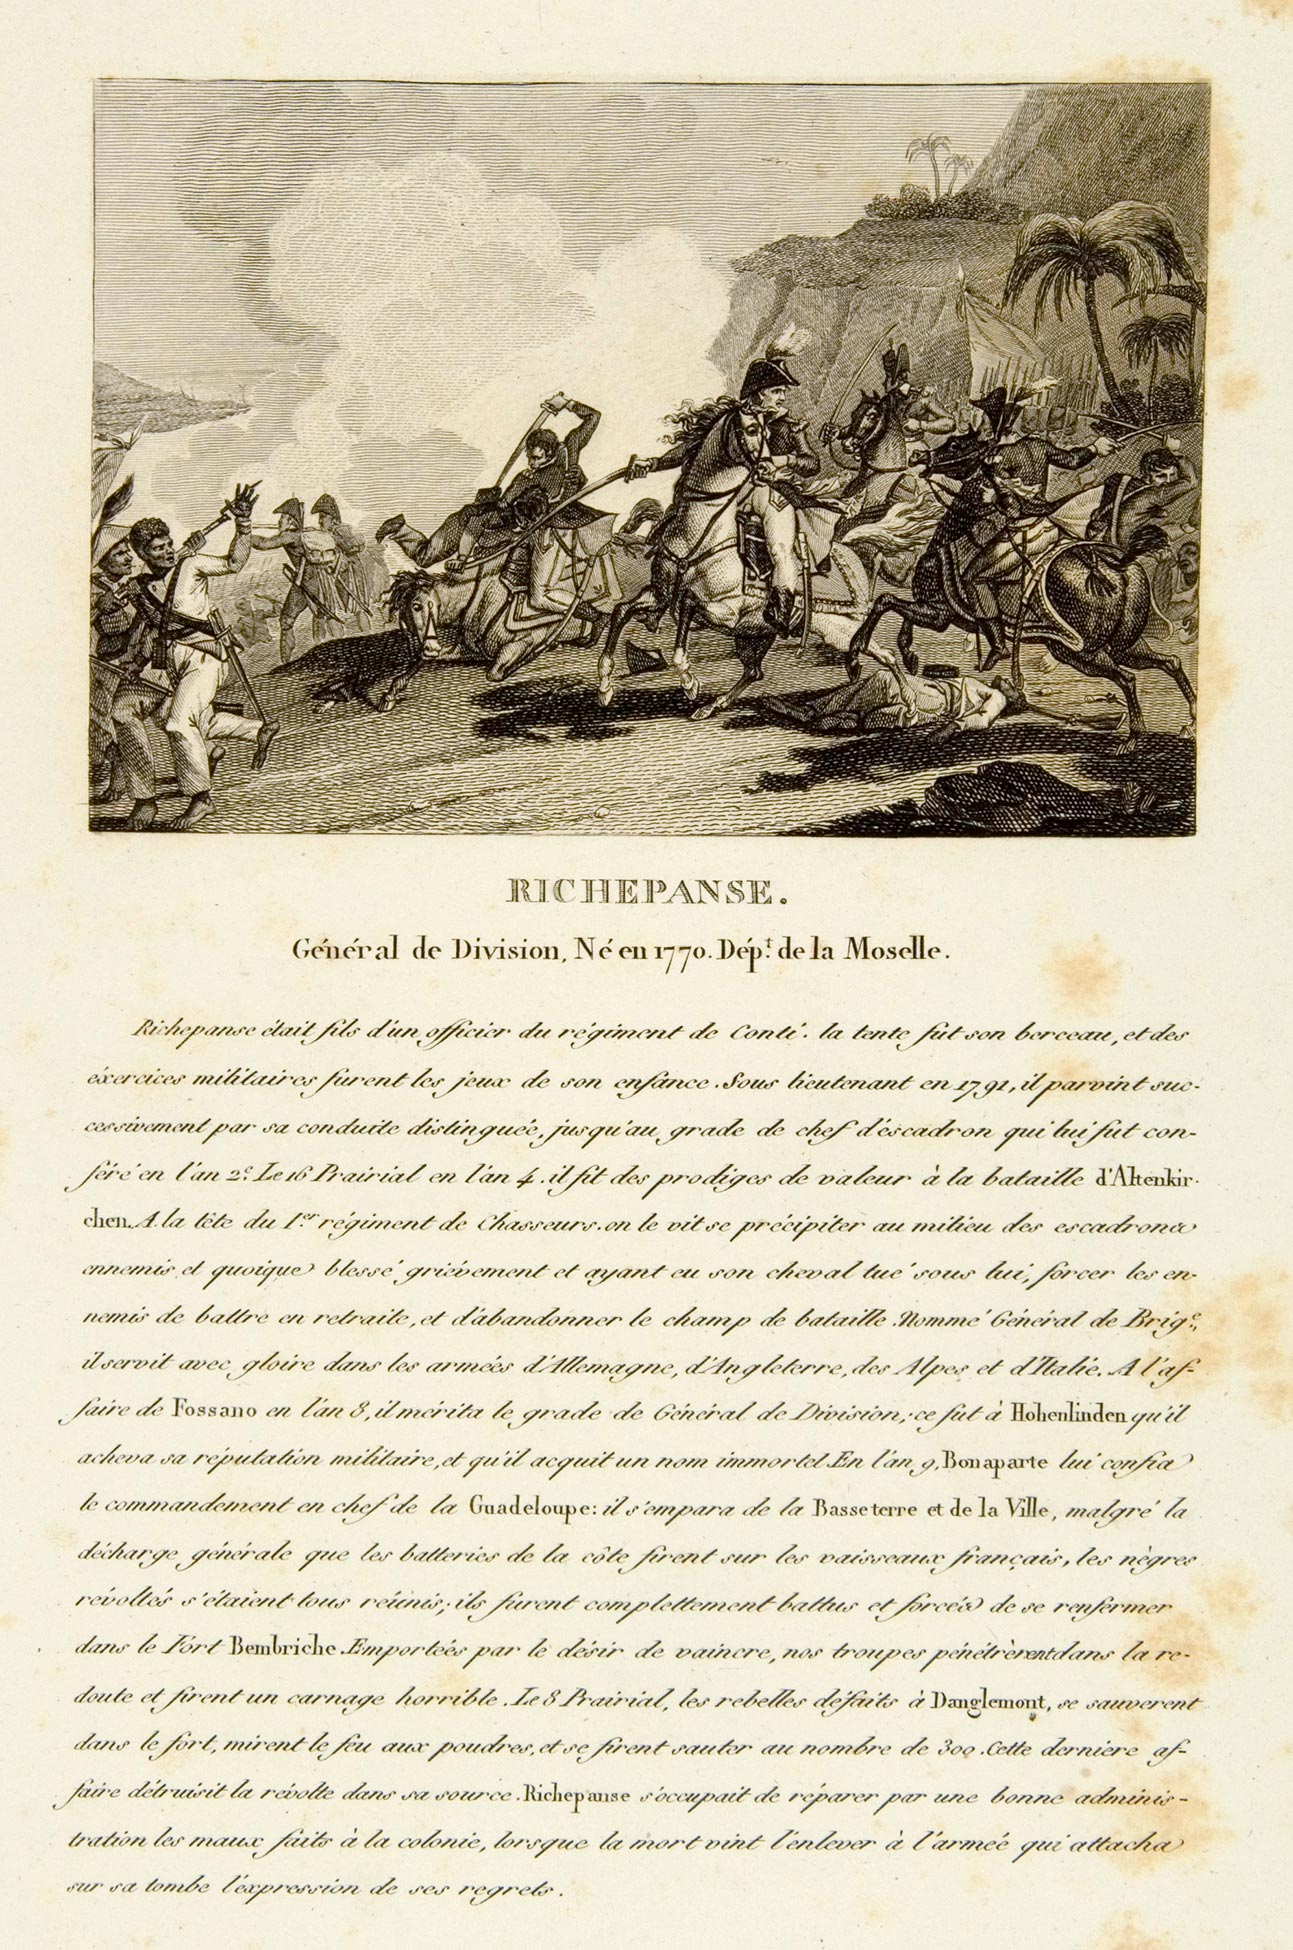 RICHEPANSE.
Général de Division, Né en 1770. Dép.t de la Moselle.
Richepanse était fils d'un officier du régiment de Conti. la tente fut son berceau, et des
éxercices militaires furent les jeux de son enfance. Sous lieutenant en 1791, il parvint suc-
cessivement par sa conduite distinguée, jusqu'au grade de chef d'éscadron qui lui fut con-
féré en l'an 2.e Le 16 Prairial en l'an 4. il fit des prodiges de valeur à la bataille d'Altenkir-
chen. A la tête du 1.er régiment de Chasseurs. on le vit se précipiter au milieu des escadrons
ennemis et quoique blessé griévement et ayant eu son cheval tué sous lui, forcer les en-
nemis de battre en retraite, et d'abandonner le champ de bataille. Nommé Général de Brig.e,
il servit avec gloire dans les armées d'Allemagne, d'Angleterre, des Alpes et d'Italie. A l'af-
faire de Fossano en l'an 8, il mérita le grade de Général de Division; ce fut à Hohenlinden qu'il
acheva sa réputation militaire, et qu'il acquit un nom immortel. En l'an 9, Bonaparte lui confia
le commandement en chef de la Guadeloupe: il s'empara de la Basseterre et de la Ville, malgré la
décharge générale que les batteries de la côte firent sur les vaisseaux français, les nègres
révoltés s'étaient tous réunis; ils furent complettement battus et forcés de se renfermer
dans le Fort Bembriche. Emportées par le désir de vaincre, nos troupes pénétrèrent dans la re-
doute et firent un carnage horrible. Le 8 Prairial, les rebelles défaits à Danglemont, se sauverent
dans le fort, mirent le feu aux poudres, et se firent sauter au nombre de 300. Cette derniere af-
faire détruisit la révolte dans sa source. Richepanse s'occupait de réparer par une bonne adminis-
tration les maux faits à la colonie, lorsque la mort vint l'enlever à l'armée qui attacha
sur sa tombe l'éxpression de ses regrets.